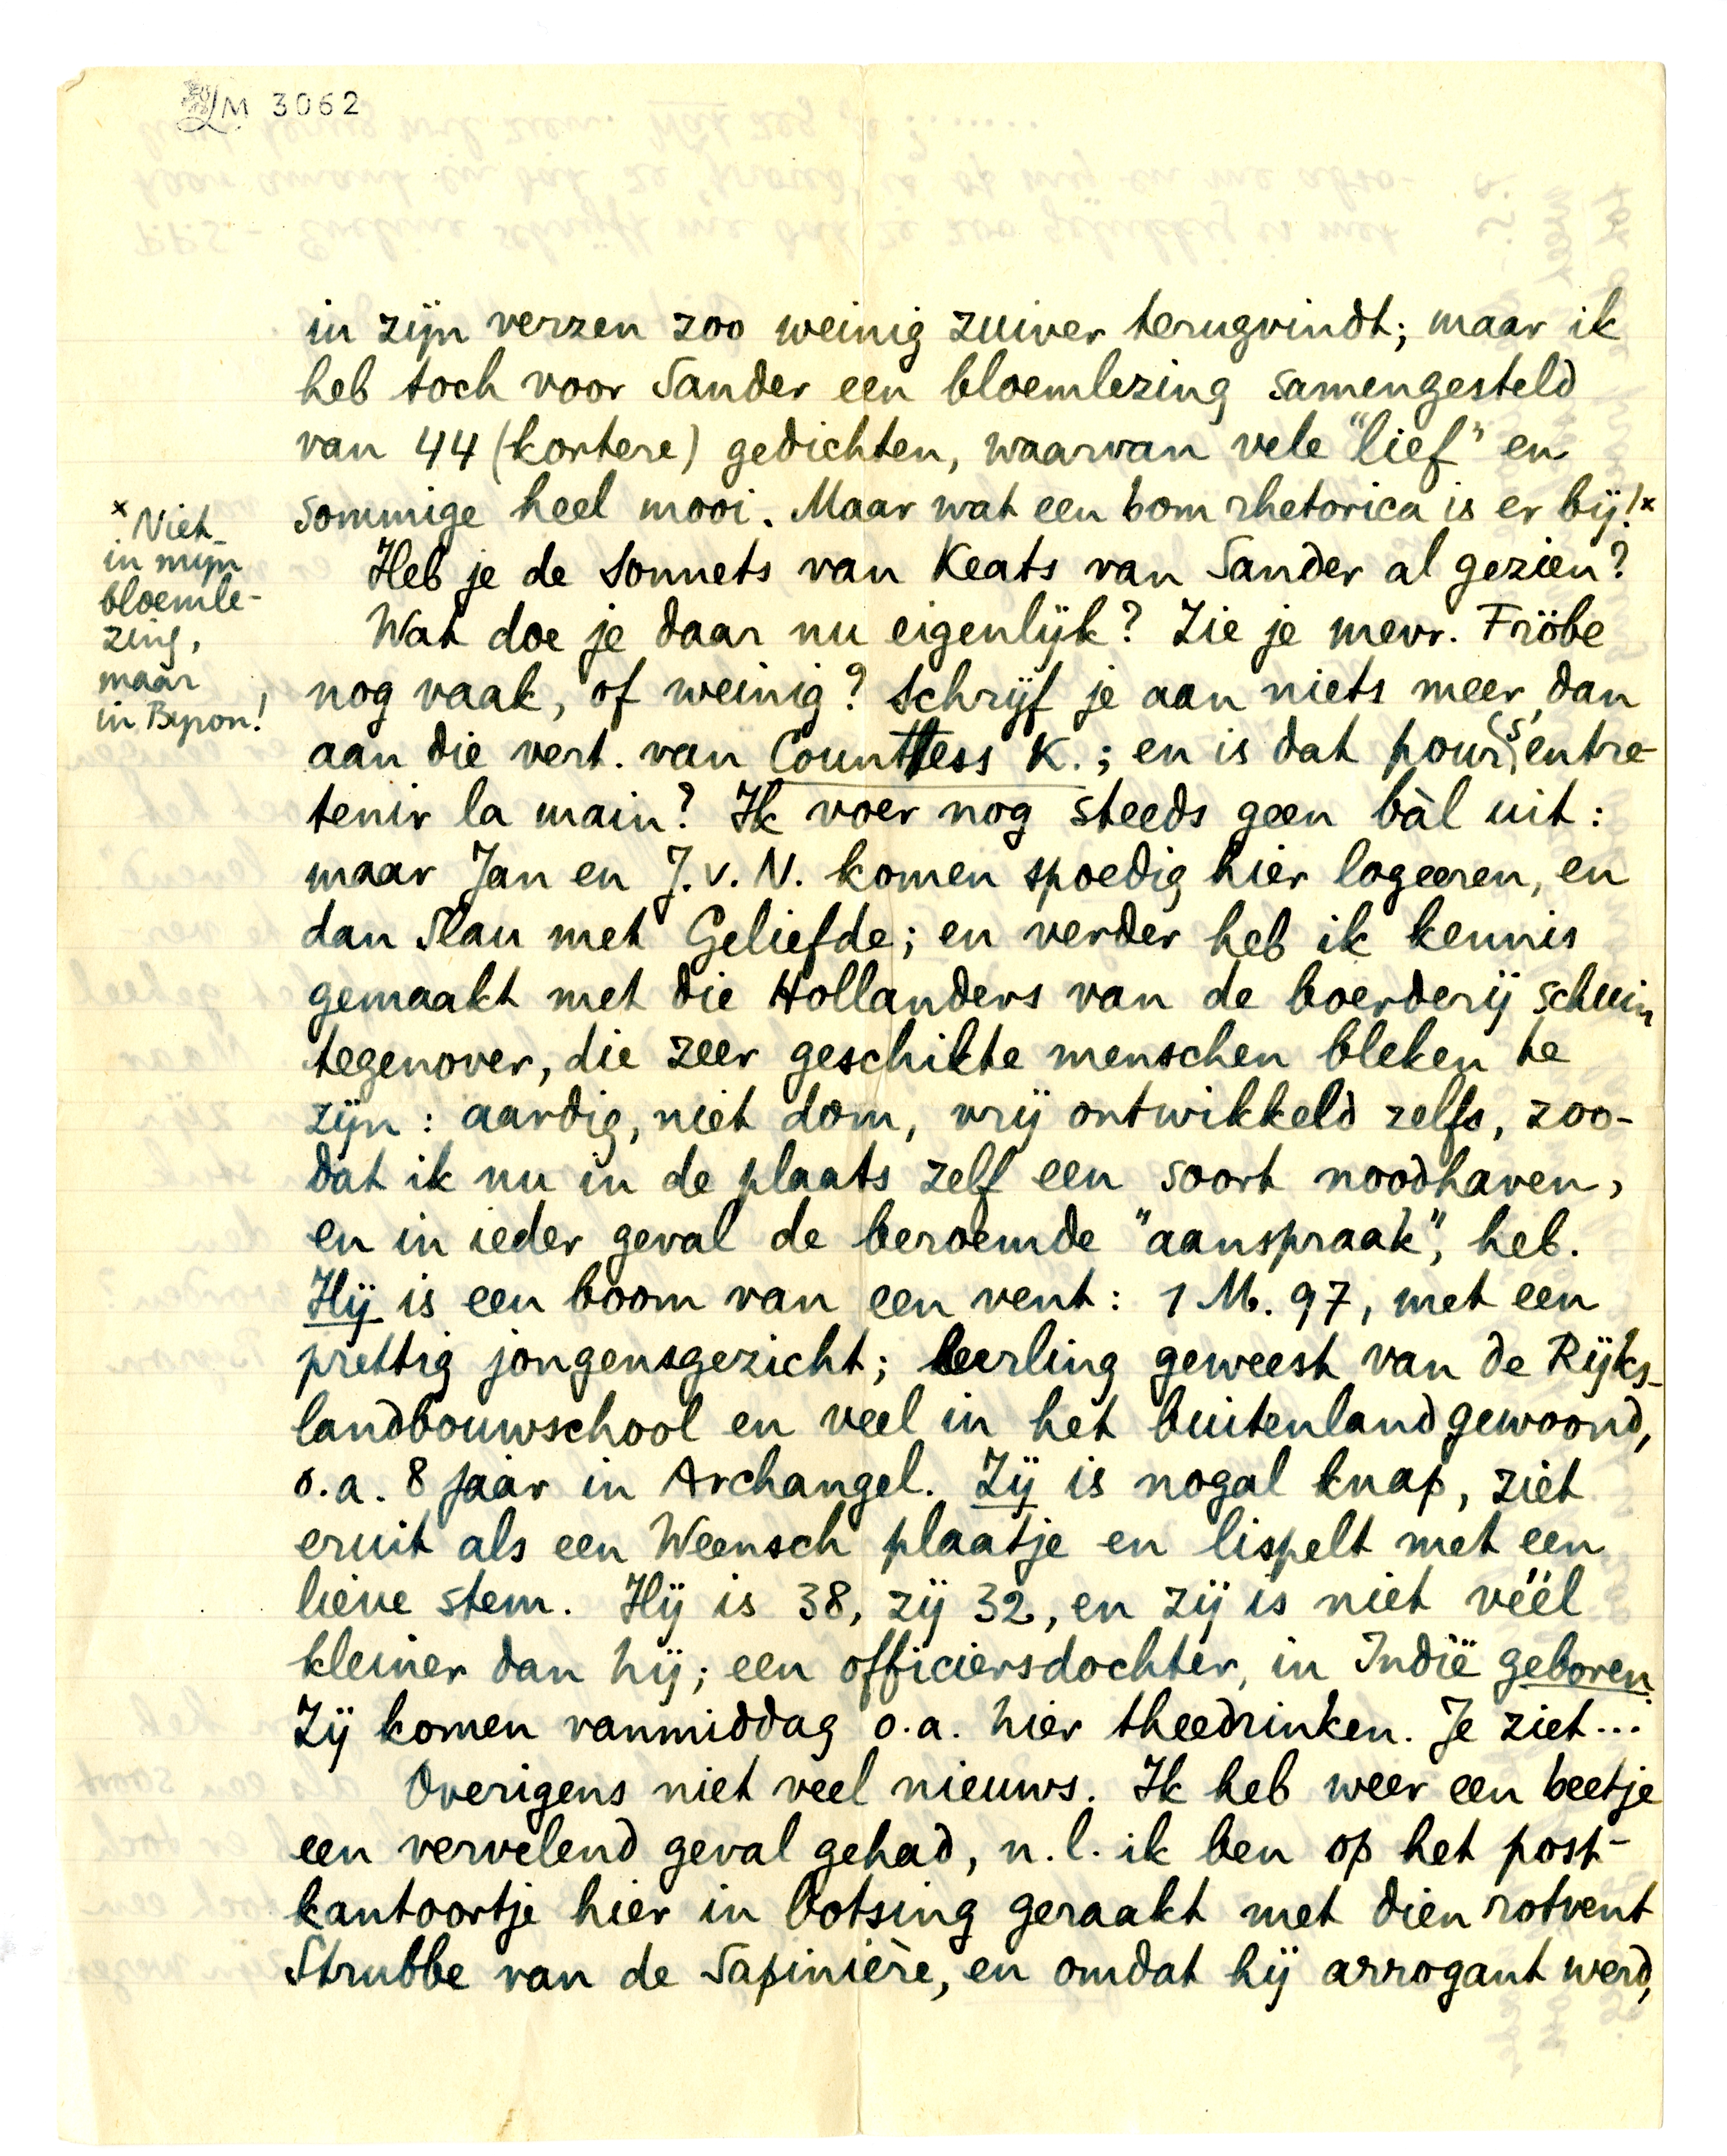 LM 3062
in zijn verzen zoo weinig zuiver terugvindt; maar ik
heb toch voor Sander een bloemlezing samengesteld
van 44 (kortere) gedichten, waarvan vele "lief" en
sommige heel mooi. Maar wat een bom rhetorica is er bij!x
x Niet
in mijn
bloemle-
zing,
maar
in Byron!
Heb je de Sonnets van Keats van Sander al gezien?
Wat doe je daar nu eigenlijk? Zie je mevr. Fröbe
nog vaak, of weinig? Schrijf je aan niets meer, dan
aan die vert. van Counttess K.; en is dat pour s'entre-
tenir la main? Ik voer nog steeds geen bàl uit:
maar Jan en J.v.N. komen spoedig hier logeeren, en
dan Slau met Geliefde; en verder heb ik kennis
gemaakt met die Hollanders van de boerderij schuin
tegenover, die zeer geschikte menschen bleken te
zijn: aardig, niet dom, vrij ontwikkeld zelfs, zoo-
dat ik nu in de plaats zelf een soort noodhaven,
en in ieder geval de beroemde "aanspraak", heb.
Hij is een boom van een vent: 1 M. 97, met een
prettig jongensgezicht; leerling geweest van de Rijks-
landbouwschool en veel in het buitenland gewoond,
o.a. 8 jaar in Archangel. Zij is nogal knap, ziet
eruit als een Weensch plaatje en lispelt met een
lieve stem. Hij is 38, zij 32, en zij is niet véél
kleiner dan hij; een officiersdochter, in Indië geboren.
Zij komen vanmiddag o.a. hier theedrinken. Je ziet...
Overigens niet veel nieuws. Ik heb weer een beetje
een vervelend geval gehad, n.l. ik ben op het post-
kantoortje hier in botsing geraakt met dien rotvent
Strubbe van de Sapinière, en omdat hij arrogant werd,